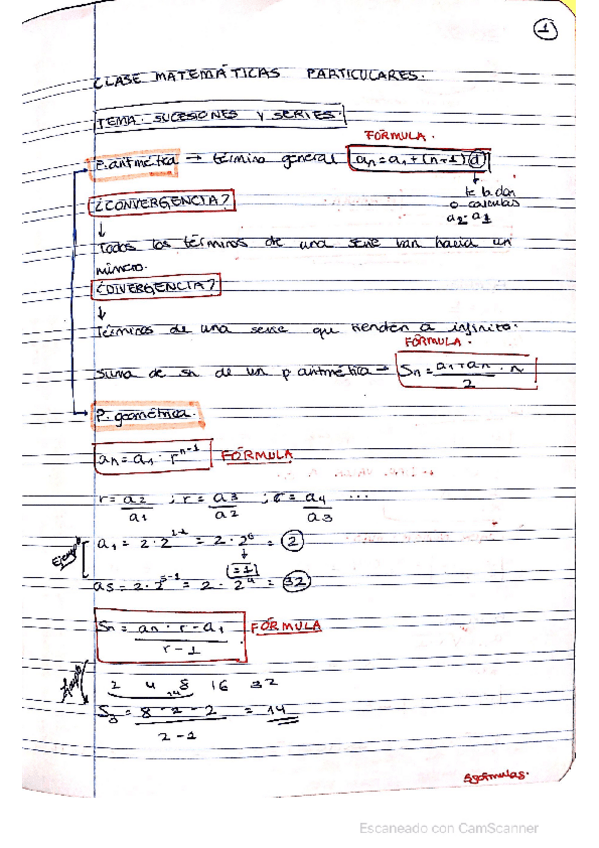 1
CLASE MATEMÁTICAS PARTICULARES.
TEMA: SUCESIONES Y SERIES.
FÓRMULA.
P. aritmética → término general an = a1 + (n-1) d
te la dan
o calculas
a2 - a1
¿CONVERGENCIA?
↓
Todos los términos de una serie van hacia un
número.
¿DIVERGENCIA?
↓
Términos de una serie que tienden a infinito.
FÓRMULA.
suma de sn de un p aritmética → Sn = a1 + an / 2 · n
P. geométrica.
an = a1 · r^n-1 FÓRMULA
r = a2 / a1 ; r = a3 / a2 ; r = a4 / a3 ...
Ejemplo
a1 = 2 · 2^1-1 = 2 · 2^0 = 2
↓
= 1
a5 = 2 · 2^5-1 = 2 · 2^4 = 32
Sn = an · r - a1 / r - 1 FÓRMULA
2 4 8 16 32
14
S3 = 8 · 2 - 2 / 2 - 1 = 14
Escaneado con CamScanner